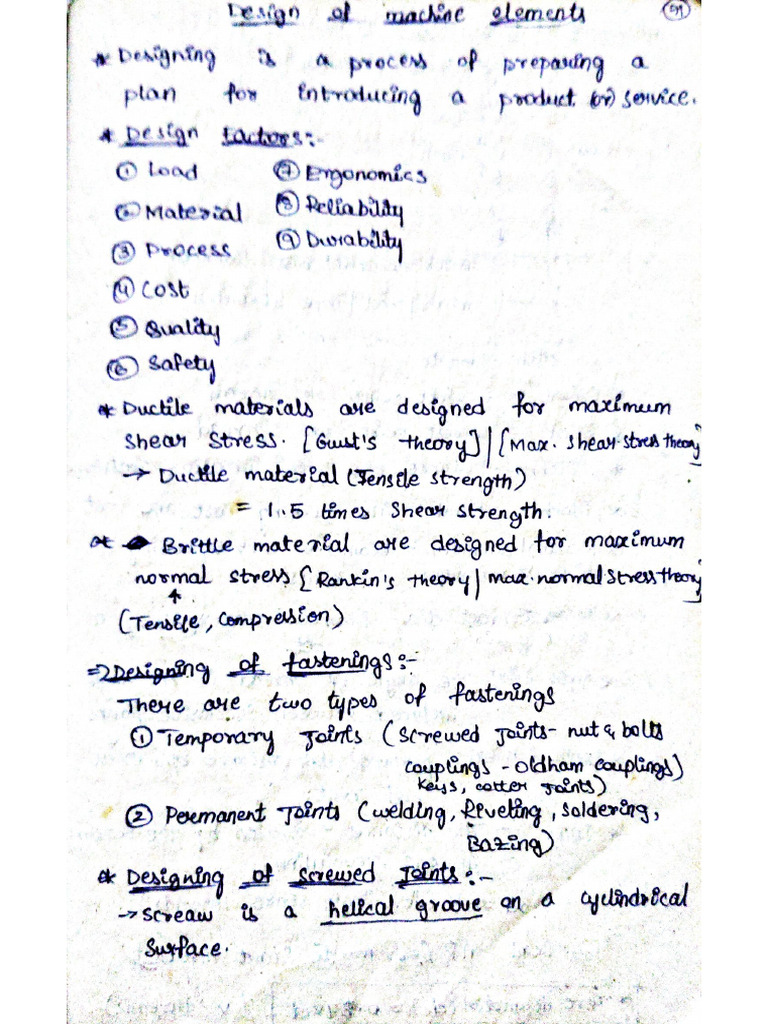 Design of machine elements
* Designing is a process of preparing a
plan for introducing a product (or) service.
* Design factors:-
① Load ⑦ Ergonomics
② Material ⑧ Reliability
③ Process ⑨ Durability
④ Cost
⑤ Quality
⑥ Safety
* Ductile materials are designed for maximum
shear stress. [Gust's theory] | [Max. shear stress theory]
→ Ductile material (Tensile strength)
= 1.5 times shear strength.
* Brittle material are designed for maximum
normal stress [Rankin's theory | max. normal stress theory]
↑
(Tensile, compression)
⇒ Designing of fastenings:-
There are two types of fastenings
① Temporary Joints (screwed Joints- nut & bolts
couplings - oldham couplings)
keys, cotter joints)
② Permanent Joints (welding, Riveting, soldering,
Bazing)
* Designing of screwed Joints:-
→ screaw is a helical groove on a cyclindrical
surface.